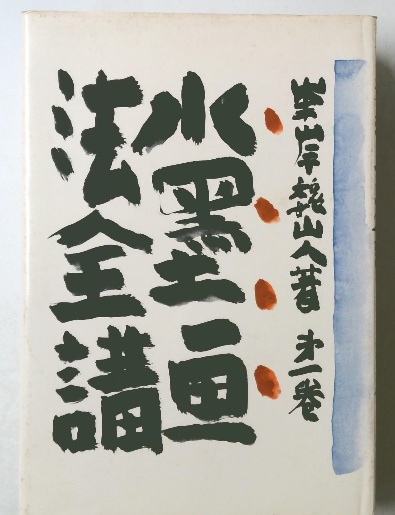 峯岸魏山人著 第一巻
水墨画
法全講